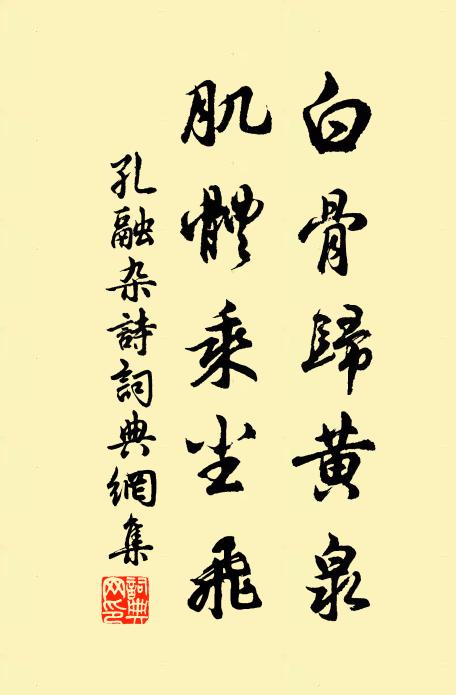 白骨歸黃泉
肌體乘尘飛
孔融杂詩詞典網集
詞典網印